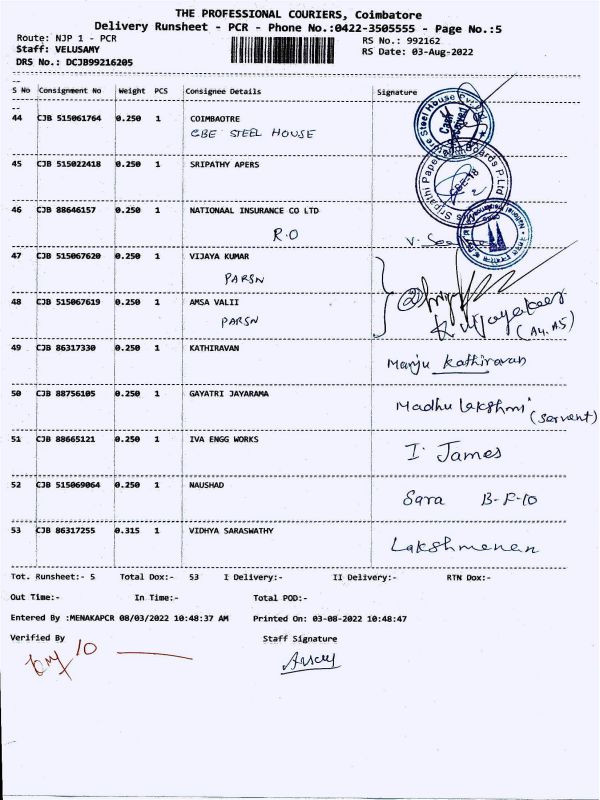 THE PROFESSIONAL COURIERS, Coimbatore
Delivery Runsheet - PCR - Phone No.:0422-3505555 - Page No.:5
Route: NJP 1 - PCR
RS No.: 992162
Staff: VELUSAMY
RS Date: 03-Aug-2022
DRS No.: DCJB99216205
S No Consignment No Weight PCS Consignee Details Signature
44 CJB 515061764 0.250 1 COIMBAOTRE
CBE STEEL HOUSE
45 CJB 515022418 0.250 1 SRIPATHY APERS
46 CJB 88646157 0.250 1 NATIONAAL INSURANCE CO LTD
R.O
47 CJB 515067620 0.250 1 VIJAYA KUMAR
PARSN
48 CJB 515067619 0.250 1 AMSA VALII
PARSN
49 CJB 86317330 0.250 1 KATHIRAVAN
Manju Kathiravan
50 CJB 88756105 0.250 1 GAYATRI JAYARAMA
Madhu Lakshmi (Servent)
51 CJB 88665121 0.250 1 IVA ENGG WORKS
I. James
52 CJB 515069064 0.250 1 NAUSHAD
Sara B-F-10
53 CJB 86317255 0.315 1 VIDHYA SARASWATHY
Lakshmenen
Tot. Runsheet:- 5 Total Dox:- 53 I Delivery:- II Delivery:- RTN Dox:-
Out Time:- In Time:- Total POD:-
Entered By :MENAKAPCR 08/03/2022 10:48:37 AM Printed On: 03-08-2022 10:48:47
Verified By Staff Signature
10